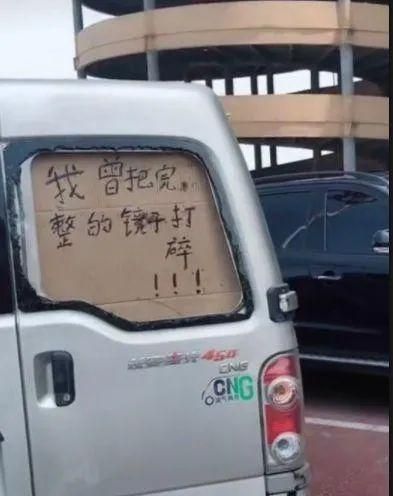 我曾把完
整的镜子打
碎
!!!
450
CNG
CNG